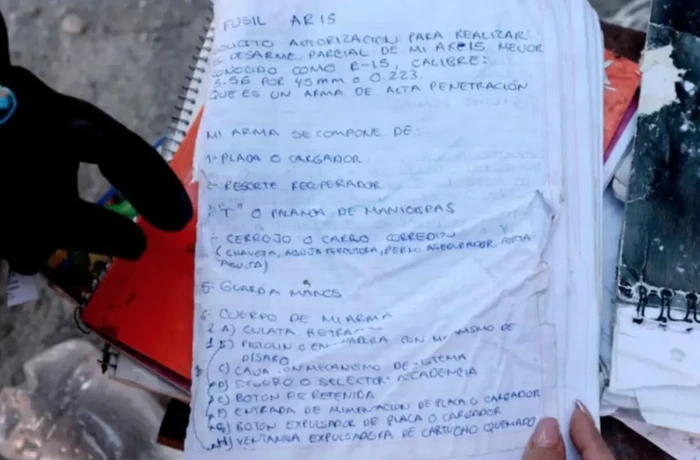 FUSIL AR15
SOLICITO AUTORIZACION PARA REALIZAR
EL DESARME PARCIAL DE MI AR-15 MEJOR
CONOCIDO COMO R-15, CALIBRE:
5.56 POR 45 mm o 0.223.
QUE ES UN ARMA DE ALTA PENETRACIÓN
MI ARMA SE COMPONE DE:
1- PLACA O CARGADOR
2- RESORTE RECUPERADOR
"T" O PALANCA DE MANIOBRAS
- CERROJO O CARRO CORREDIZO
(CHAVETA, AGUJA PERCUTORA, PERNO ASEGURADOR PORTA
AGUJA)
5- GUARDA MANOS
6- CUERPO DE MI ARMA
A) CULATA
B) DE
DISPARO
C) CAJA CON MECANISMO DE
D) SEGURO O SELECTOR CADENCIA
E) BOTON DE RETENIDA
F) ENTRADA DE ALIMENTACION DE PLACA O CARGADOR
G) BOTON EXPULSADOR DE PLACA O CARGADOR
H) VENTANILLA EXPULSADORA DE CARTUCHO QUEMADO